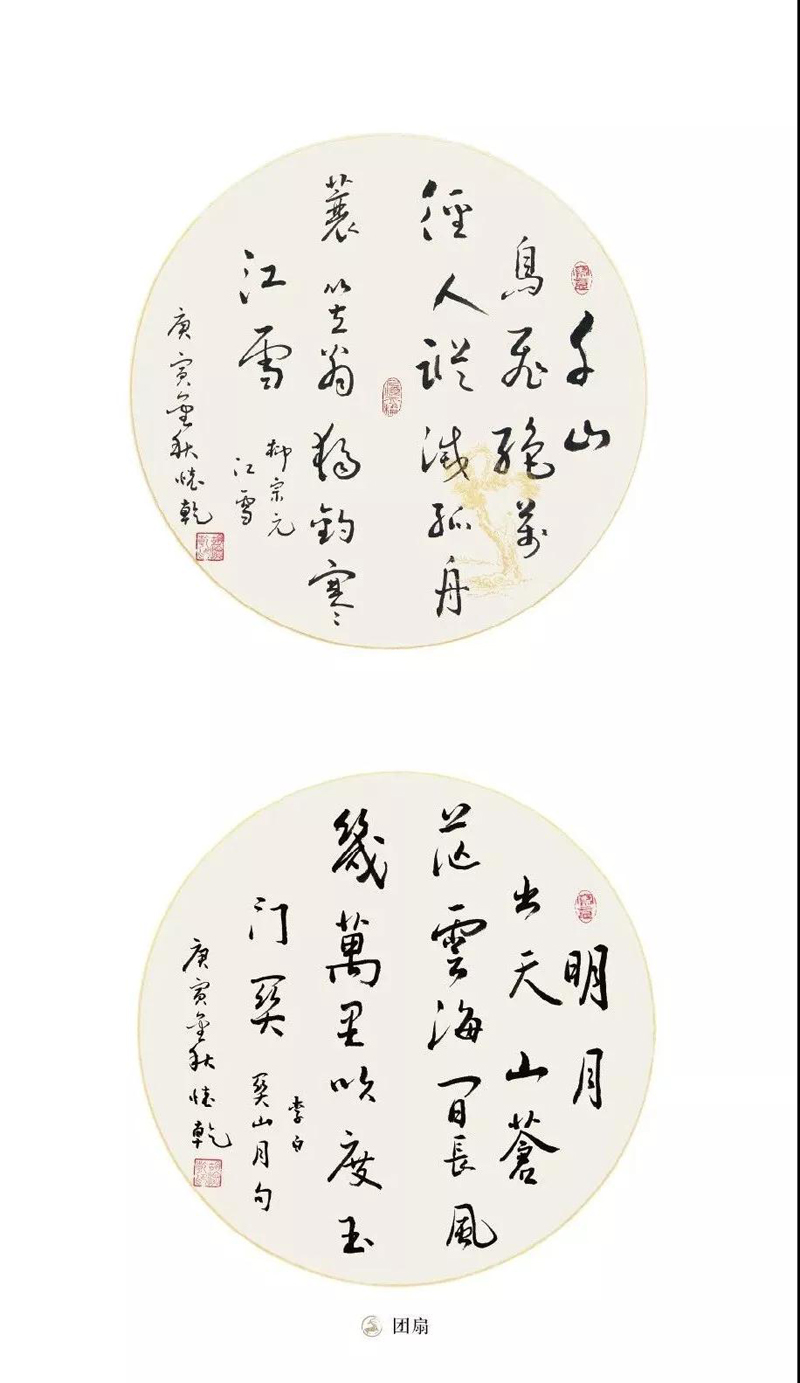 千山
鳥飛絕萬
徑人蹤滅孤舟
蓑笠翁獨釣寒
江雪
柳宗元
江雪
庚寅金秋 乾
明月
出天山蒼
茫雲海間長風
幾萬里吹度玉
门関
李白
関山月句
庚寅金秋 乾
团扇